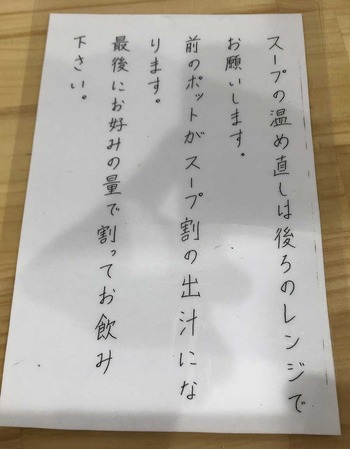 スープの温め直しは後ろのレンジで
お願いします。
前のポットがスープ割の出汁にな
ります。
最後にお好みの量で割ってお飲み
下さい。